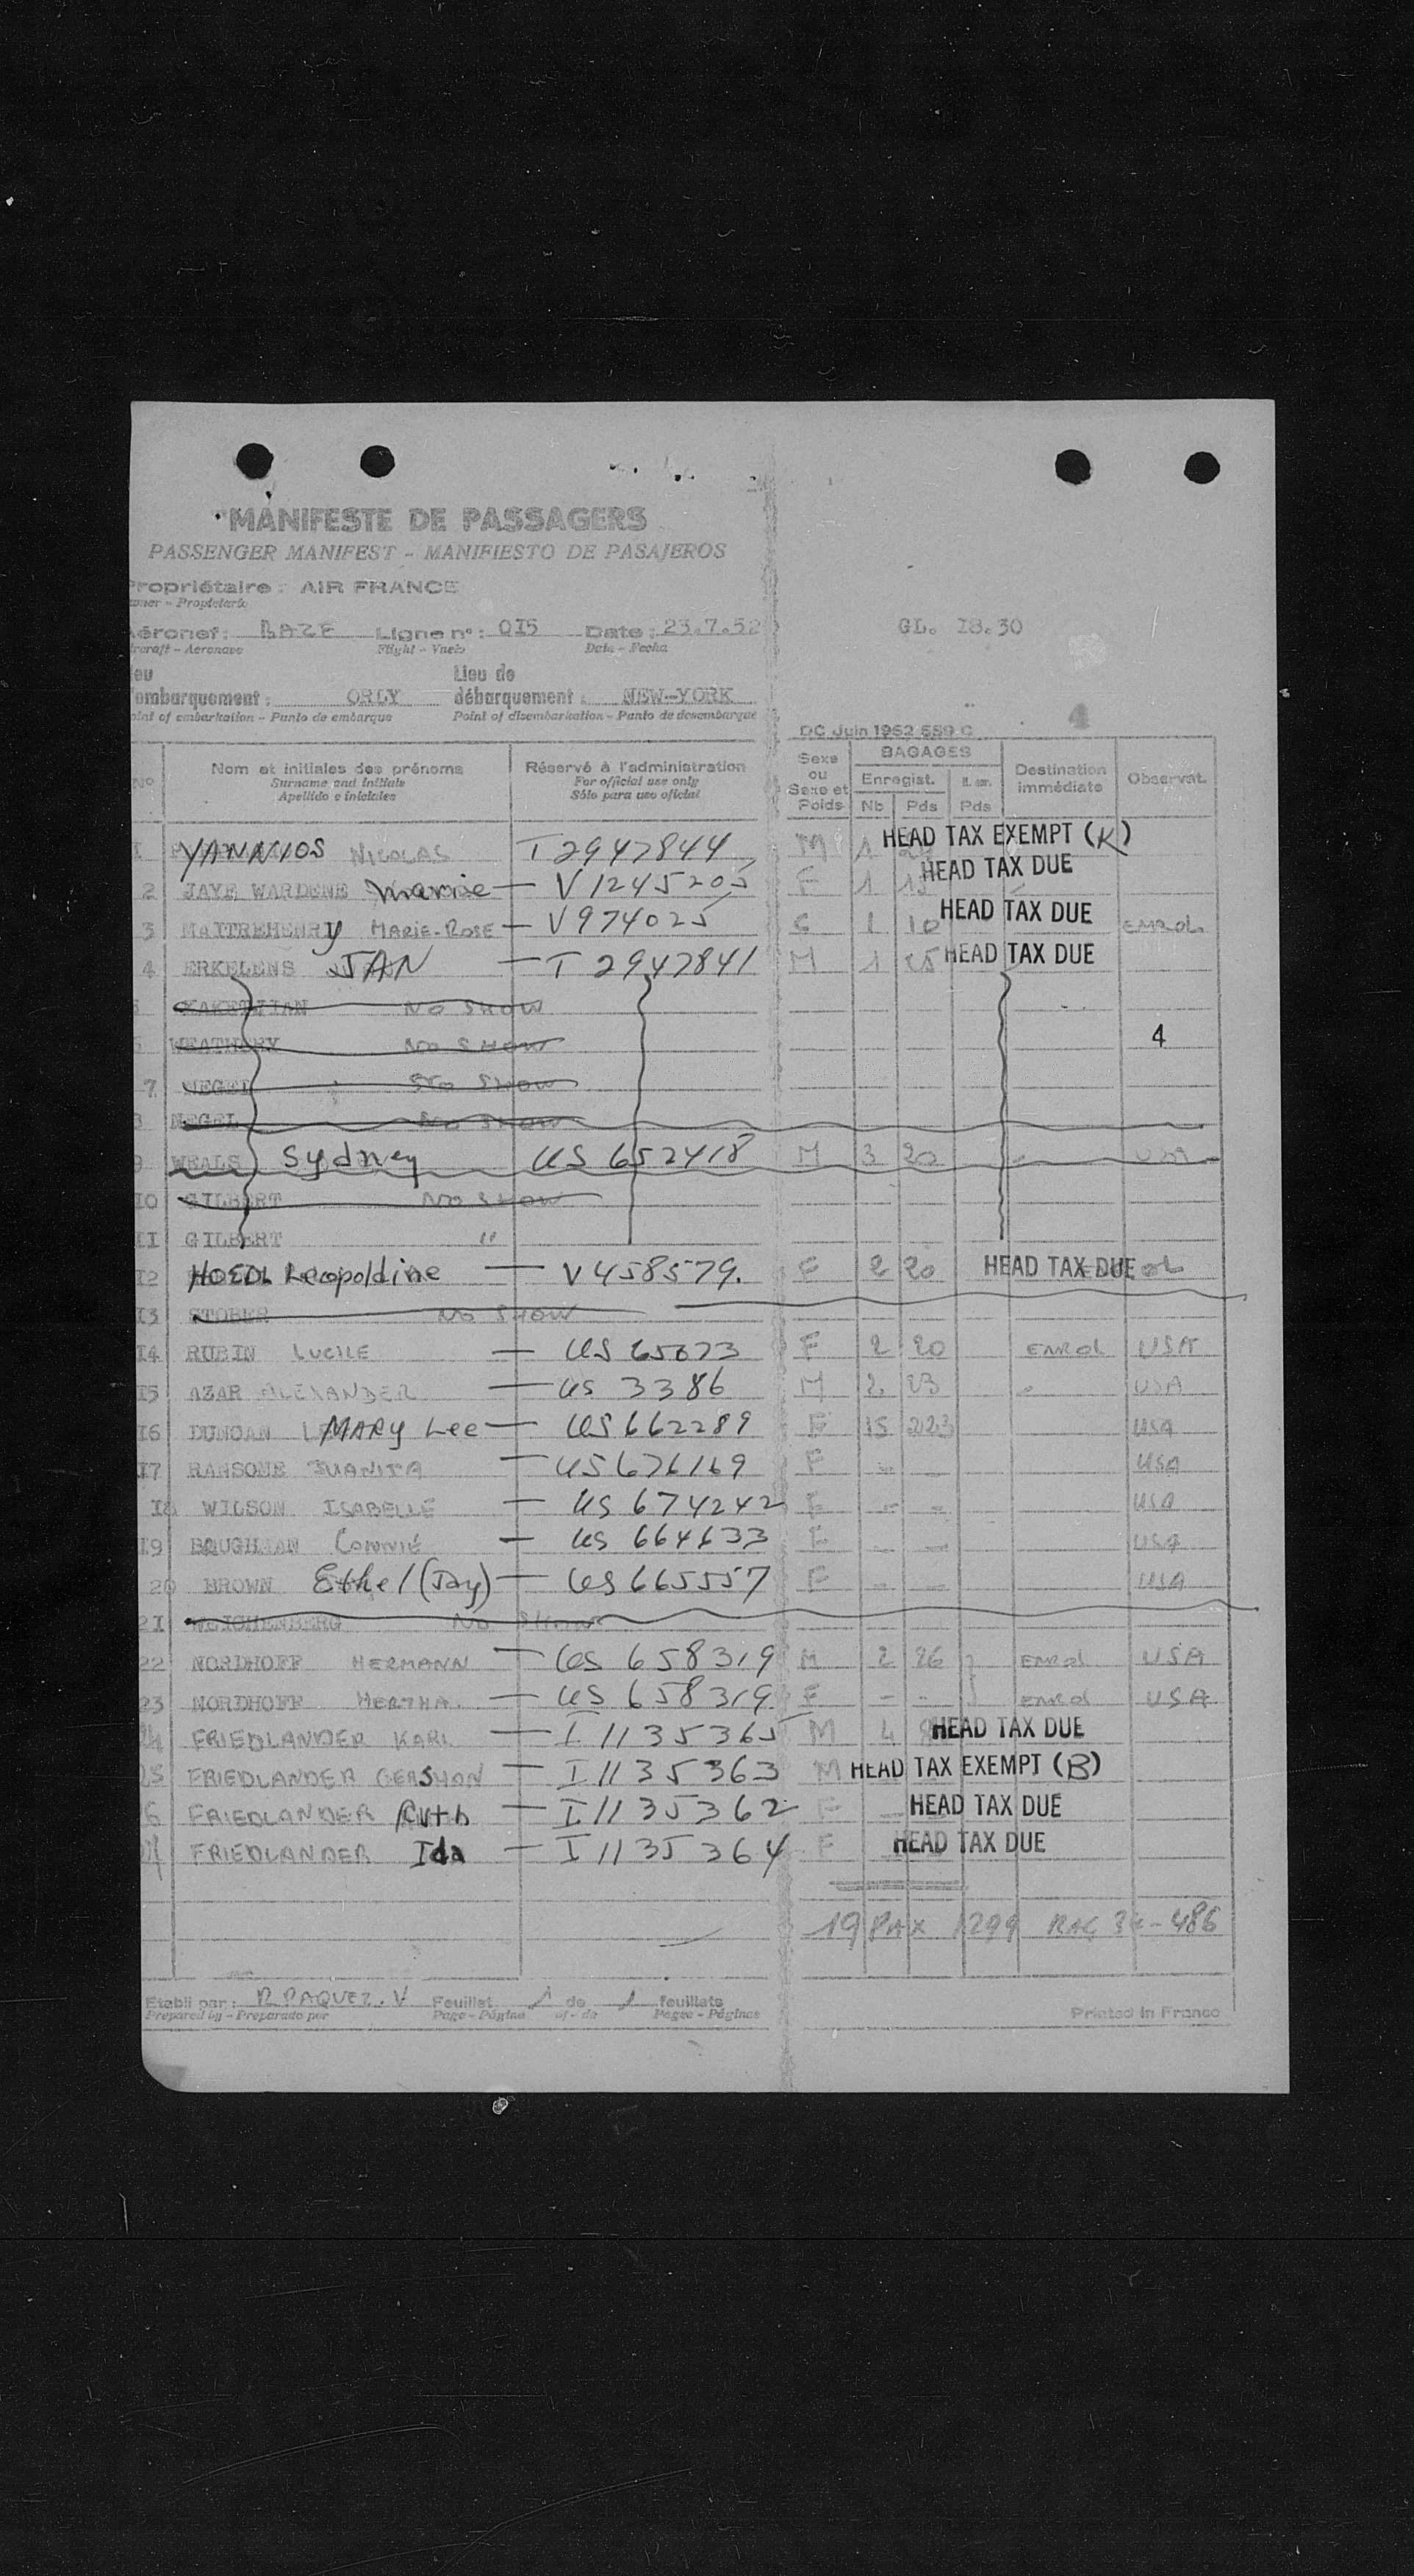 MANIFESTE DE PASSAGERS
PASSENGER MANIFEST - MANIFIESTO DE PASAJEROS
Propriétaire : AIR FRANCE
Owner - Propietario
Aéronef : BAZE Ligne n° : OI5 Date : 23.7.52 GL. I8.30
Aircraft - Aeronave Flight - Vuelo Date - Fecha
Lieu Lieu de
d'embarquement : ORLY débarquement : NEW-YORK
Point of embarkation - Punto de embarque Point of disembarkation - Punto de desembarque
4
DC Juin 1952 559 C
N° Nom et initiales des prénoms Réservé à l'administration Sexe ou Sexe et Poids BAGAGES Destination immédiate Observat.
Surname and initials For official use only Enregist.
Apellido e iniciales Sólo para uso oficial Nb Pds Pds
I YANNIOS NICOLAS T 2947844 M 1 HEAD TAX EXEMPT (K)
2 JAYE WARDENE Marie — V 1245205 F 1 15 HEAD TAX DUE
3 MAITREHENRY MARIE-ROSE — V 974025 C 1 10 HEAD TAX DUE ENROL
4 ERKELENS JAN — T 2947841 M 1 25 HEAD TAX DUE
NO SHOW
6 WEATHERY NO SHOW 4
7 NEGEL NO SHOW
8 NEGEL NO SHOW
9 WEALS Sydney US 652418 M 3 20 USA
IO GILBERT NO SHOW
II GILBERT "
I2 HOEDL Leopoldine — V 458579. F 2 20 HEAD TAX DUE
I3 STOBER NO SHOW
I4 RUBIN LUCILE — US 65073 F 2 20 ENROL USA
I5 AZAR ALEXANDER — US 3386 M 2 23 " USA
I6 DUNCAN MARY Lee — US 662289 F 15 223 USA
I7 RANSONE JUANITA — US 676169 F - - USA
I8 WILSON ISABELLE — US 674242 F - - USA
I9 BAUGHMAN CONNIE — US 664633 F - - USA
20 BROWN Ethel (Joy) — US 665557 F - - USA
2I WEICHENBERG NO SHOW
22 NORDHOFF HERMANN — US 658319 M 2 26 ENROL USA
23 NORDHOFF HERTHA. — US 658319 F - - ENROL USA
24 FRIEDLANDER KARL — I 1135365 M 4 HEAD TAX DUE
25 FRIEDLANDER GERSHON — I 1135363 M HEAD TAX EXEMPT (B)
26 FRIEDLANDER Ruth — I 1135362 F HEAD TAX DUE
27 FRIEDLANDER Ida — I 1135364 F HEAD TAX DUE
19 PAX 1299 BAG 34-486
Etabli par : R PAQUEZ. V Feuillet 1 de 1 feuillets
Prepared by - Preparado por Page - Página of - de Pages - Páginas Printed in France